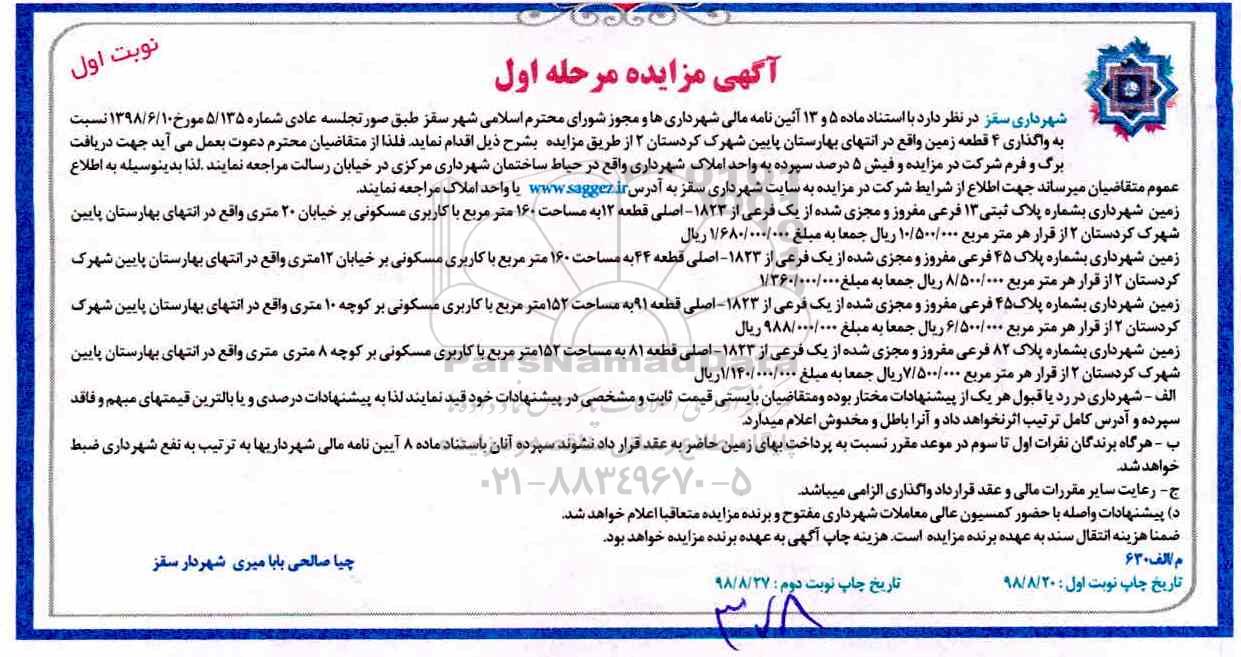 نوبت اول
آگهی مزایده مرحله اول
شهرداری سقز در نظر دارد با استناد ماده ۵ و ۱۳ آئین نامه مالی شهرداری ها و مجوز شورای محترم اسلامی شهر سقز طبق صورتجلسه عادی شماره ۵/۱۳۵ مورخ ۱۳۹۸/۶/۱۰ نسبت
به واگذاری ۴ قطعه زمین واقع در انتهای بهارستان پایین شهرک کردستان ۲ از طریق مزایده بشرح ذیل اقدام نماید. فلذا از متقاضیان محترم دعوت بعمل می آید جهت دریافت
برگ و فرم شرکت در مزایده و فیش ۵ درصد سپرده به واحد املاک شهرداری واقع در حیاط ساختمان شهرداری مرکزی در خیابان رسالت مراجعه نمایند .لذا بدینوسیله به اطلاع
عموم متقاضیان میرساند جهت اطلاع از شرایط شرکت در مزایده به سایت شهرداری سقز به آدرس www.saggez.ir یا واحد املاک مراجعه نمایند.
زمین شهرداری بشماره پلاک ثبتی ۱۳ فرعی مفروز و مجزی شده از یک فرعی از ۱۸۲۳- اصلی قطعه ۱۲به مساحت ۱۶۰ متر مربع با کاربری مسکونی بر خیابان ۲۰ متری واقع در انتهای بهارستان پایین
شهرک کردستان ۲ از قرار هر متر مربع ۱۰/۵۰۰/۰۰۰ ریال جمعا به مبلغ ۱/۶۸۰/۰۰۰/۰۰۰ ریال
زمین شهرداری بشماره پلاک ۴۵ فرعی مفروز و مجزی شده از یک فرعی از ۱۸۲۳- اصلی قطعه ۴۴به مساحت ۱۶۰ متر مربع با کاربری مسکونی بر خیابان ۱۲متری واقع در انتهای بهارستان پایین شهرک
کردستان ۲ از قرار هر متر مربع ۸/۵۰۰/۰۰۰ ریال جمعا به مبلغ۱/۳۶۰/۰۰۰/۰۰۰
زمین شهرداری بشماره پلاک۴۵ فرعی مفروز و مجزی شده از یک فرعی از ۱۸۲۳-اصلی قطعه ۹۱به مساحت ۱۵۲متر مربع با کاربری مسکونی بر کوچه ۱۰ متری واقع در انتهای بهارستان پایین شهرک
کردستان ۲ از قرار هر متر مربع ۶/۵۰۰/۰۰۰ ریال جمعا به مبلغ ۹۸۸/۰۰۰/۰۰۰ ریال
زمین شهرداری بشماره پلاک ۸۲ فرعی مفروز و مجزی شده از یک فرعی از ۱۸۲۳-اصلی قطعه ۸۱ به مساحت ۱۵۲متر مربع با کاربری مسکونی بر کوچه ۸ متری متری واقع در انتهای بهارستان پایین
شهرک کردستان ۲ از قرار هر متر مربع ۷/۵۰۰/۰۰۰ریال جمعا به مبلغ ۱/۱۴۰/۰۰۰/۰۰۰ریال
الف - شهرداری در رد یا قبول هر یک از پیشنهادات مختار بوده ومتقاضیان بایستی قیمت ثابت و مشخصی در پیشنهادات خود قید نمایند لذا به پیشنهادات درصدی و یا بالاترین قیمتهای مبهم و فاقد
سپرده و آدرس کامل ترتیب اثرنخواهد داد و آنرا باطل و مخدوش اعلام میدارد.
ب - هرگاه برندگان نفرات اول تا سوم در موعد مقرر نسبت به پرداخت بهای زمین حاضر به عقد قرار داد نشوند سپرده آنان باستناد ماده ۸ آیین نامه مالی شهرداریها به ترتیب به نفع شهرداری ضبط
خواهد شد.
ج- رعایت سایر مقررات مالی و عقد قرارداد واگذاری الزامی میباشد.
د) پیشنهادات واصله با حضور کمسیون عالی معاملات شهرداری مفتوح و برنده مزایده متعاقبا اعلام خواهد شد.
ضمنا هزینه انتقال سند به عهده برنده مزایده است. هزینه چاپ آگهی به عهده برنده مزایده خواهد بود.
م/الف۶۳۰
چیا صالحی بابا میری شهردار سقز
تاریخ چاپ نوبت اول : ۹۸/۸/۲۰
تاریخ چاپ نوبت دوم : ۹۸/۸/۲۷
ParsNamadData
۰۲۱-۸۸۳۴۹۶۷۰-۵